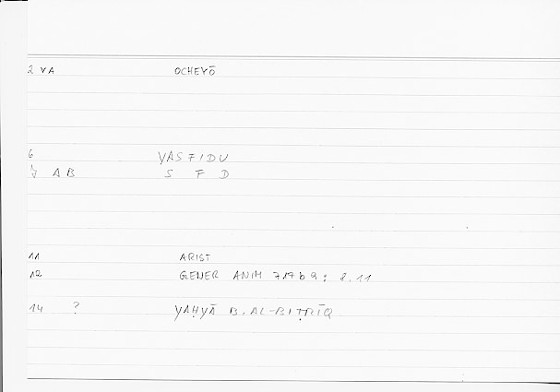 2 VA OCHEYŌ
6 YASFIDU
V AB S F D
11 ARIST
12 GENER ANIM 717b9; 8.11
14 ? YAḤYĀ B. AL-BIṬRĪQ